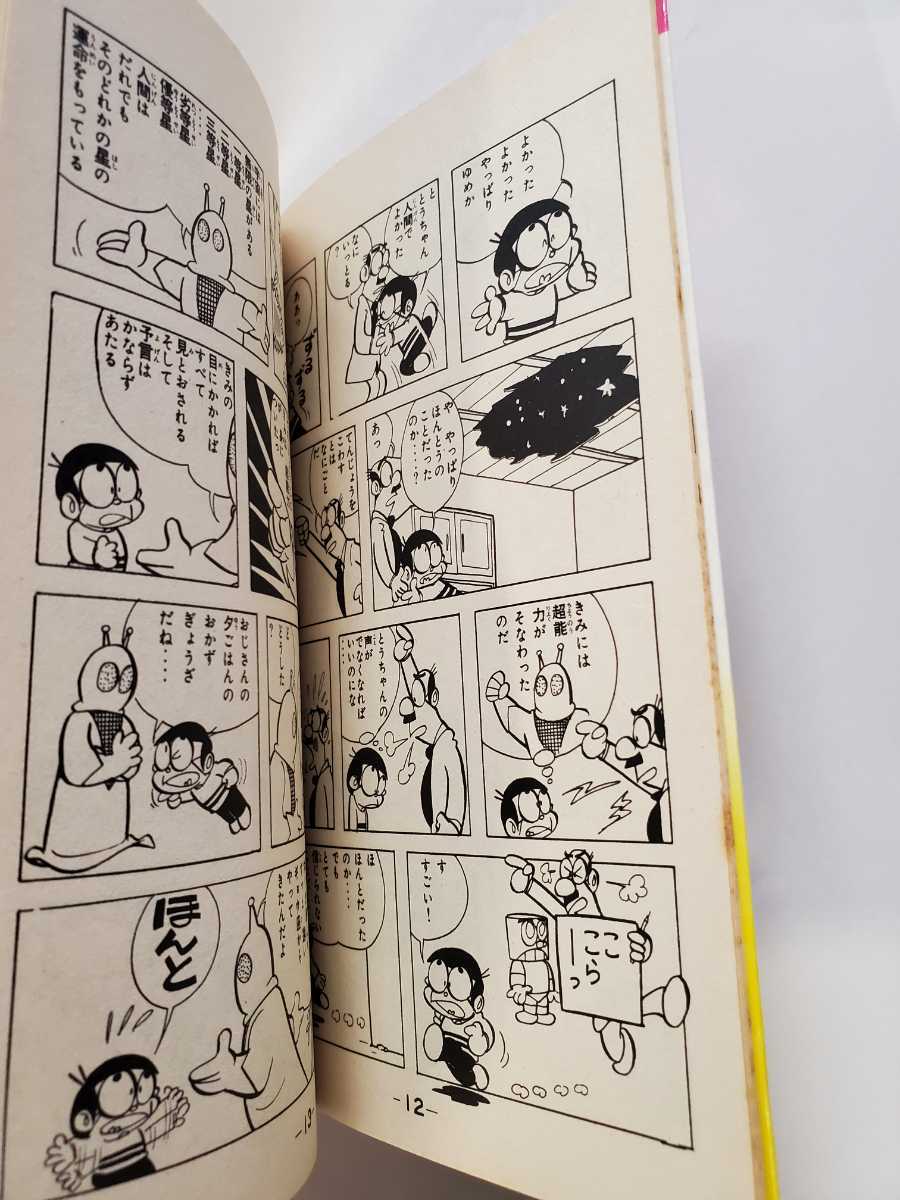 よかった
よかった
やっぱり
ゆめか
と
とうちゃん
人間で
よかった
なに
いっとる
?
ああっ
ずる
ずる
や やっぱり
ほんとうの
ことだった
のか・・・・?
あっ
てんじょうを
こわす
とは
なにごと
だ
きみには
超能
力が
そなわった
のだ
とうちゃんの
声が
でなくなれば
いいのにな
こ
こら
ーっ
す
すごい!
ほ
ほんとだった
のか・・・・
でも
とても
信じられない
-12-
星がある
二等星
三等星
劣等星
優等星
人間は
だれでも
そのどれかの星の
運命をもっている
きみの
目にかかれば
すべて
見とおされる
そして
予言は
かならず
あたる
どうした
?
おじさんの
夕ごはんの
おかず
ぎょうざ
だね・・・
やって
きたんだよ
ほんと
-13-